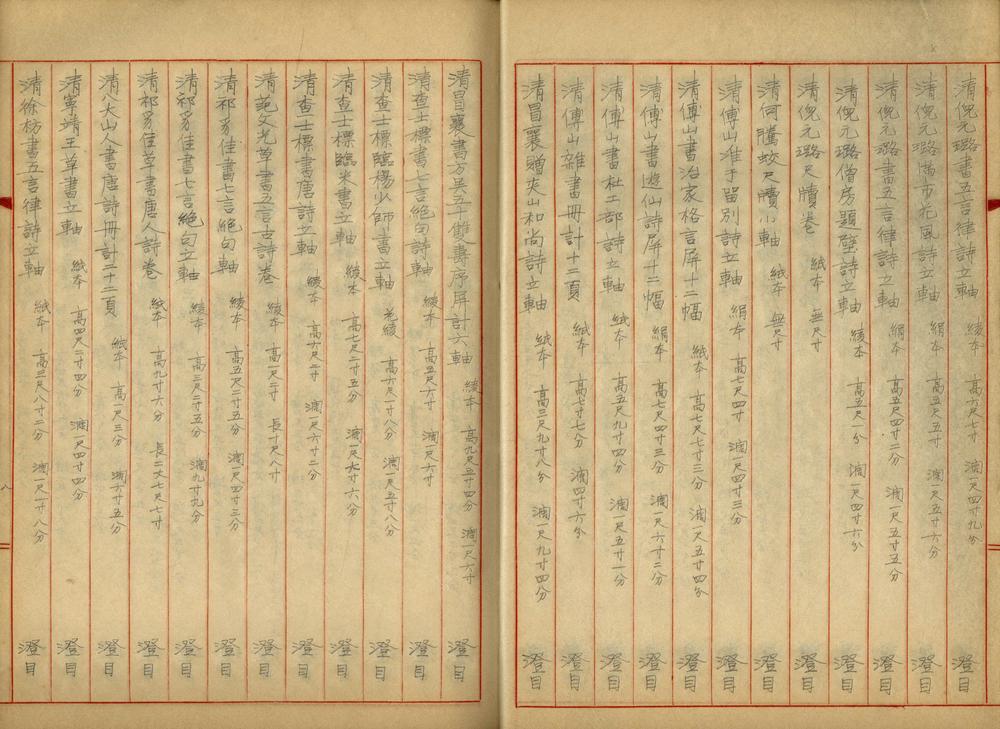 清倪元璐書五言律詩立軸 綾本 高六尺七寸 濶一尺四寸九分 澄目
清倪元璐滿市花風詩立軸 絹本 高五尺五寸 濶一尺五寸六分 澄目
清倪元璐書五言律詩立軸 絹本 高五尺四寸二分 濶一尺五寸五分 澄目
清倪元璐僧房題壁詩立軸 綾本 高五尺一分 濶一尺四寸六分 澄目
清倪元璐尺牘卷 紙本 無尺寸 澄目
清何騰蛟尺牘小軸 紙本 無尺寸 澄目
清傅山淮于留別詩立軸 絹本 高七尺四寸 濶一尺四寸三分 澄目
清傅山書治家格言屏十二幅 紙本 高七尺七寸三分 濶一尺五寸四分 澄目
清傅山書遊仙詩屏十二幅 絹本 高七尺四寸三分 濶一尺六寸二分 澄目
清傅山書杜工部詩立軸 紙本 高五尺九寸四分 濶一尺五寸一分 澄目
清傅山雜書冊計十二頁 紙本 高七寸七分 濶四寸六分 澄目
清冒襄贈夾山和尚詩立軸 紙本 高三尺九寸八分 濶一尺九寸四分 澄目
清冒襄書方吳五十雙壽序屏計六軸 綾本 高九尺三寸四分 濶一尺六寸 澄目
清查士標書七言絕句詩軸 綾本 高五尺六寸 濶一尺六寸 澄目
清查士標臨楊少師書立軸 花綾 高六尺一寸八分 濶一尺五寸八分 澄目
清查士標臨米書立軸 綾本 高七尺二寸五分 濶一尺六寸六分 澄目
清查士標書唐詩立軸 綾本 高六尺二寸 濶一尺六寸二分 澄目
清范文光草書五言古詩卷 綾本 高一尺二寸 長十尺八寸 澄目
清祁豸佳書七言絕句軸 綾本 高五尺二寸五分 濶一尺四寸三分 澄目
清祁豸佳書七言絕句立軸 綾本 高三尺二寸五分 濶九寸九分 澄目
清祁豸佳草書唐人詩卷 紙本 高九寸六分 長二丈七尺七寸 澄目
清八大山人書唐詩冊計二十二頁 紙本 高一尺三分 濶六寸五分 澄目
清寧靖王草書立軸 紙本 高四尺二寸四分 濶一尺四寸四分 澄目
清徐枋書五言律詩立軸 紙本 高三尺八寸二分 濶一尺一寸八分 澄目
八